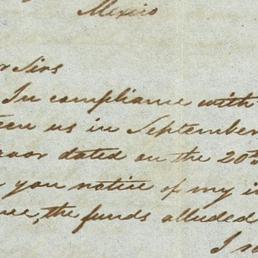 Mexico
r Sirs
In compliance with
een us in September
avor dated on the 20th
you notice of my i
ce, the funds alluded
I